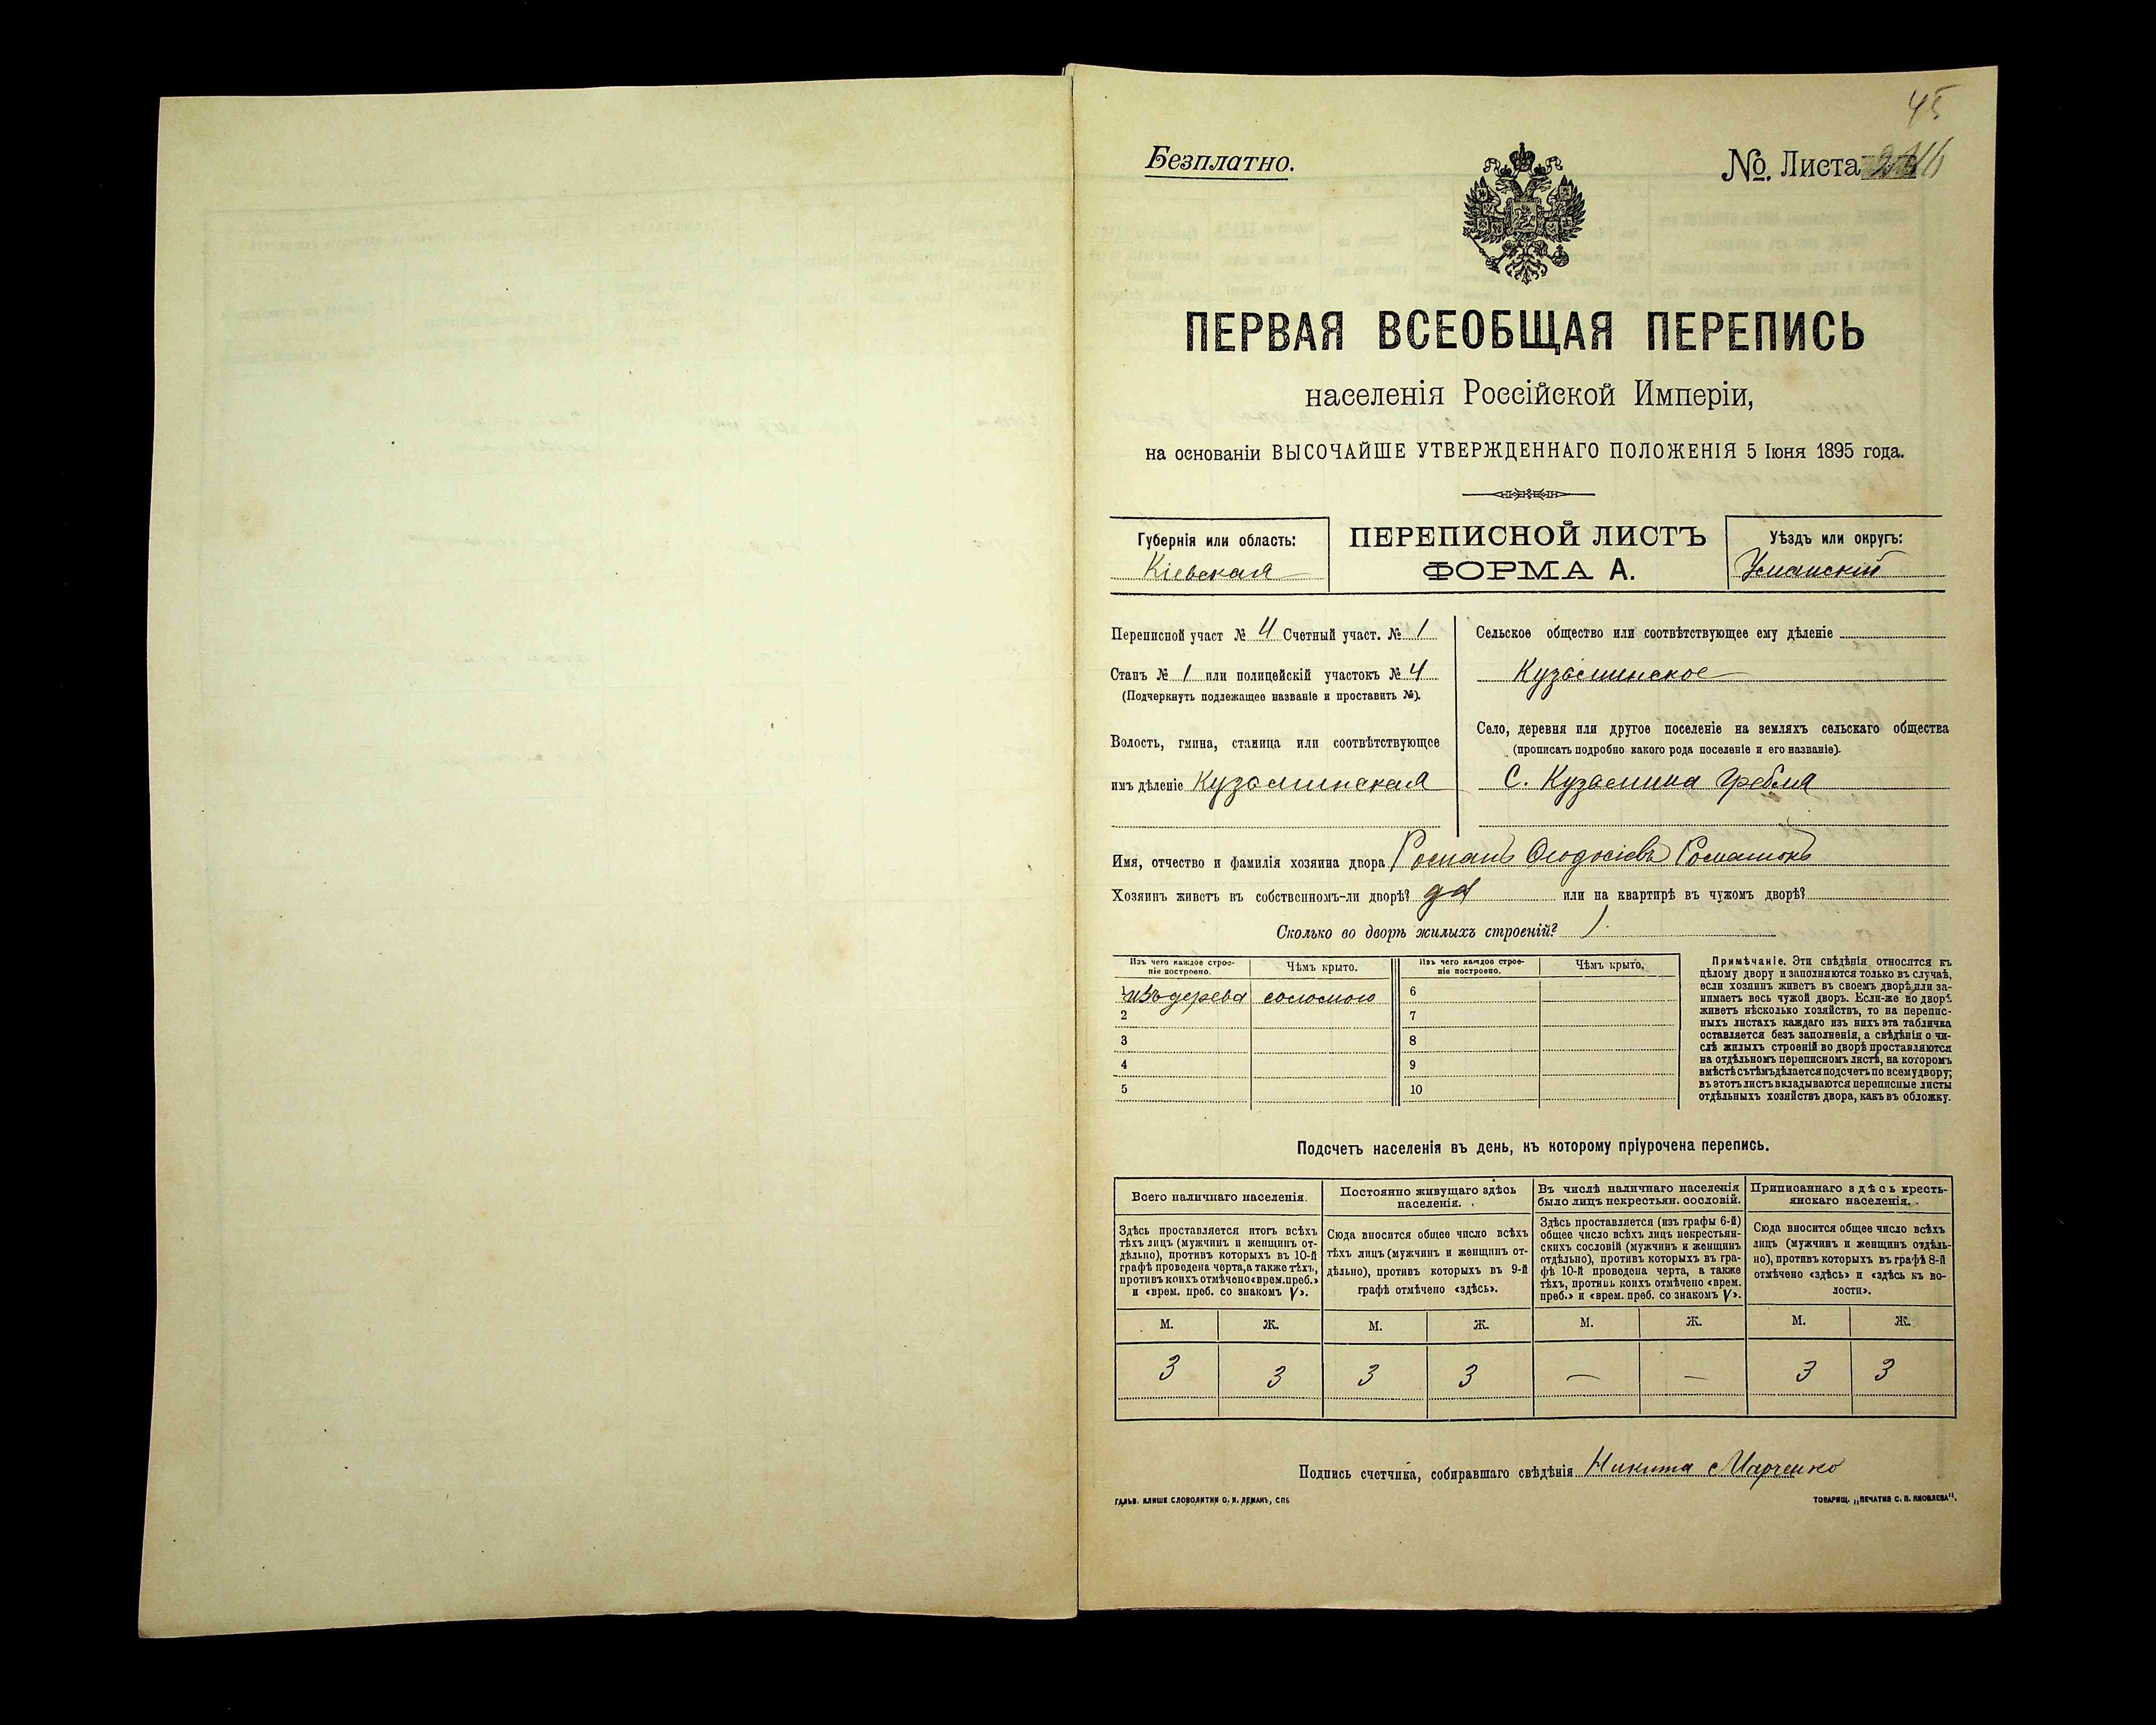 45
Безплатно.
№. Листа
ПЕРВАЯ ВСЕОБЩАЯ ПЕРЕПИСЬ
населенія Россійской Имперіи,
на основаніи ВЫСОЧАЙШЕ УТВЕРЖДЕННАГО ПОЛОЖЕНІЯ 5 Іюня 1895 года.
Губернія или область:
Кіевская
ПЕРЕПИСНОЙ ЛИСТЪ
ФОРМА А.
Уѣздъ или округъ:
Уманскій
Переписной участ № 4 Счетный участ. № 1
Станъ № 1 или полицейскій участокъ № 4
(Подчеркнуть подлежащее названіе и проставить №).
Волость, гмина, станица или соотвѣтствующее
имъ дѣленіе Кузьминская
Сельское общество или соотвѣтствующее ему дѣленіе
Кузьминское
Село, деревня или другое поселеніе на земляхъ сельскаго общества
(прописать подробно какого рода поселеніе и его названіе).
С. Кузьмина Гребля
Имя, отчество и фамилія хозяина двора Романъ Ѳеодосіевъ Романюкъ
Хозяинъ живетъ въ собственномъ-ли дворѣ? да или на квартирѣ въ чужомъ дворѣ?
Сколько во дворѣ жилыхъ строеній? 1.
Изъ чего каждое строе-
ніе построено.
Чѣмъ крыто.
Изъ чего каждое строе-
ніе построено.
Чѣмъ крыто.
1 изъ дерева соломою 6
2 7
3 8
4 9
5 10
Примѣчаніе. Эти свѣдѣнія относятся къ
цѣлому двору и заполняются только въ случаѣ,
если хозяинъ живетъ въ своемъ дворѣ или за-
нимаетъ весь чужой дворъ. Если-же во дворѣ
живетъ нѣсколько хозяйствъ, то на перепис-
ныхъ листахъ каждаго изъ нихъ эта табличка
оставляется безъ заполненія, а свѣдѣнія о чи-
слѣ жилыхъ строеній во дворѣ проставляются
на отдѣльномъ переписномъ листѣ, на которомъ
вмѣстѣ съ тѣмъ дѣлается подсчетъ по всему двору;
въ этотъ листъ вкладываются переписные листы
отдѣльныхъ хозяйствъ двора, какъ въ обложку.
Подсчетъ населенія въ день, къ которому пріурочена перепись.
Всего наличнаго населенія.
Здѣсь проставляется итогъ всѣхъ
тѣхъ лицъ (мужчинъ и женщинъ от-
дѣльно), противъ которыхъ въ 10-й
графѣ проведена черта, а также тѣхъ,
противъ коихъ отмѣчено «врем. преб.»
и «врем. преб. со знакомъ V».
Постоянно живущаго здѣсь
населенія.
Сюда вносится общее число всѣхъ
тѣхъ лицъ (мужчинъ и женщинъ от-
дѣльно), противъ которыхъ въ 9-й
графѣ отмѣчено «здѣсь».
Въ числѣ наличнаго населенія
было лицъ некрестьян. сословій.
Здѣсь проставляется (изъ графы 6-й)
общее число всѣхъ лицъ некрестьян-
скихъ сословій (мужчинъ и женщинъ
отдѣльно), противъ которыхъ въ гра-
фѣ 10-й проведена черта, а также
тѣхъ, противъ коихъ отмѣчено «врем.
преб.» и «врем. преб. со знакомъ V».
Приписаннаго здѣсь кресть-
янскаго населенія.
Сюда вносится общее число всѣхъ
лицъ (мужчинъ и женщинъ отдѣль-
но), противъ которыхъ въ графѣ 8-й
отмѣчено «здѣсь» и «здѣсь къ во-
лости».
М. Ж. М. Ж. М. Ж. М. Ж.
3 3 3 3 — — 3 3
Подпись счетчика, собиравшаго свѣдѣнія Никита Марченко
ГАЛЬВ. КЛИШЕ СЛОВОЛИТНИ О. И. ЛЕМАНЪ, СПБ
ТОВАРИЩ. „ПЕЧАТНЯ С. П. ЯКОВЛЕВА".